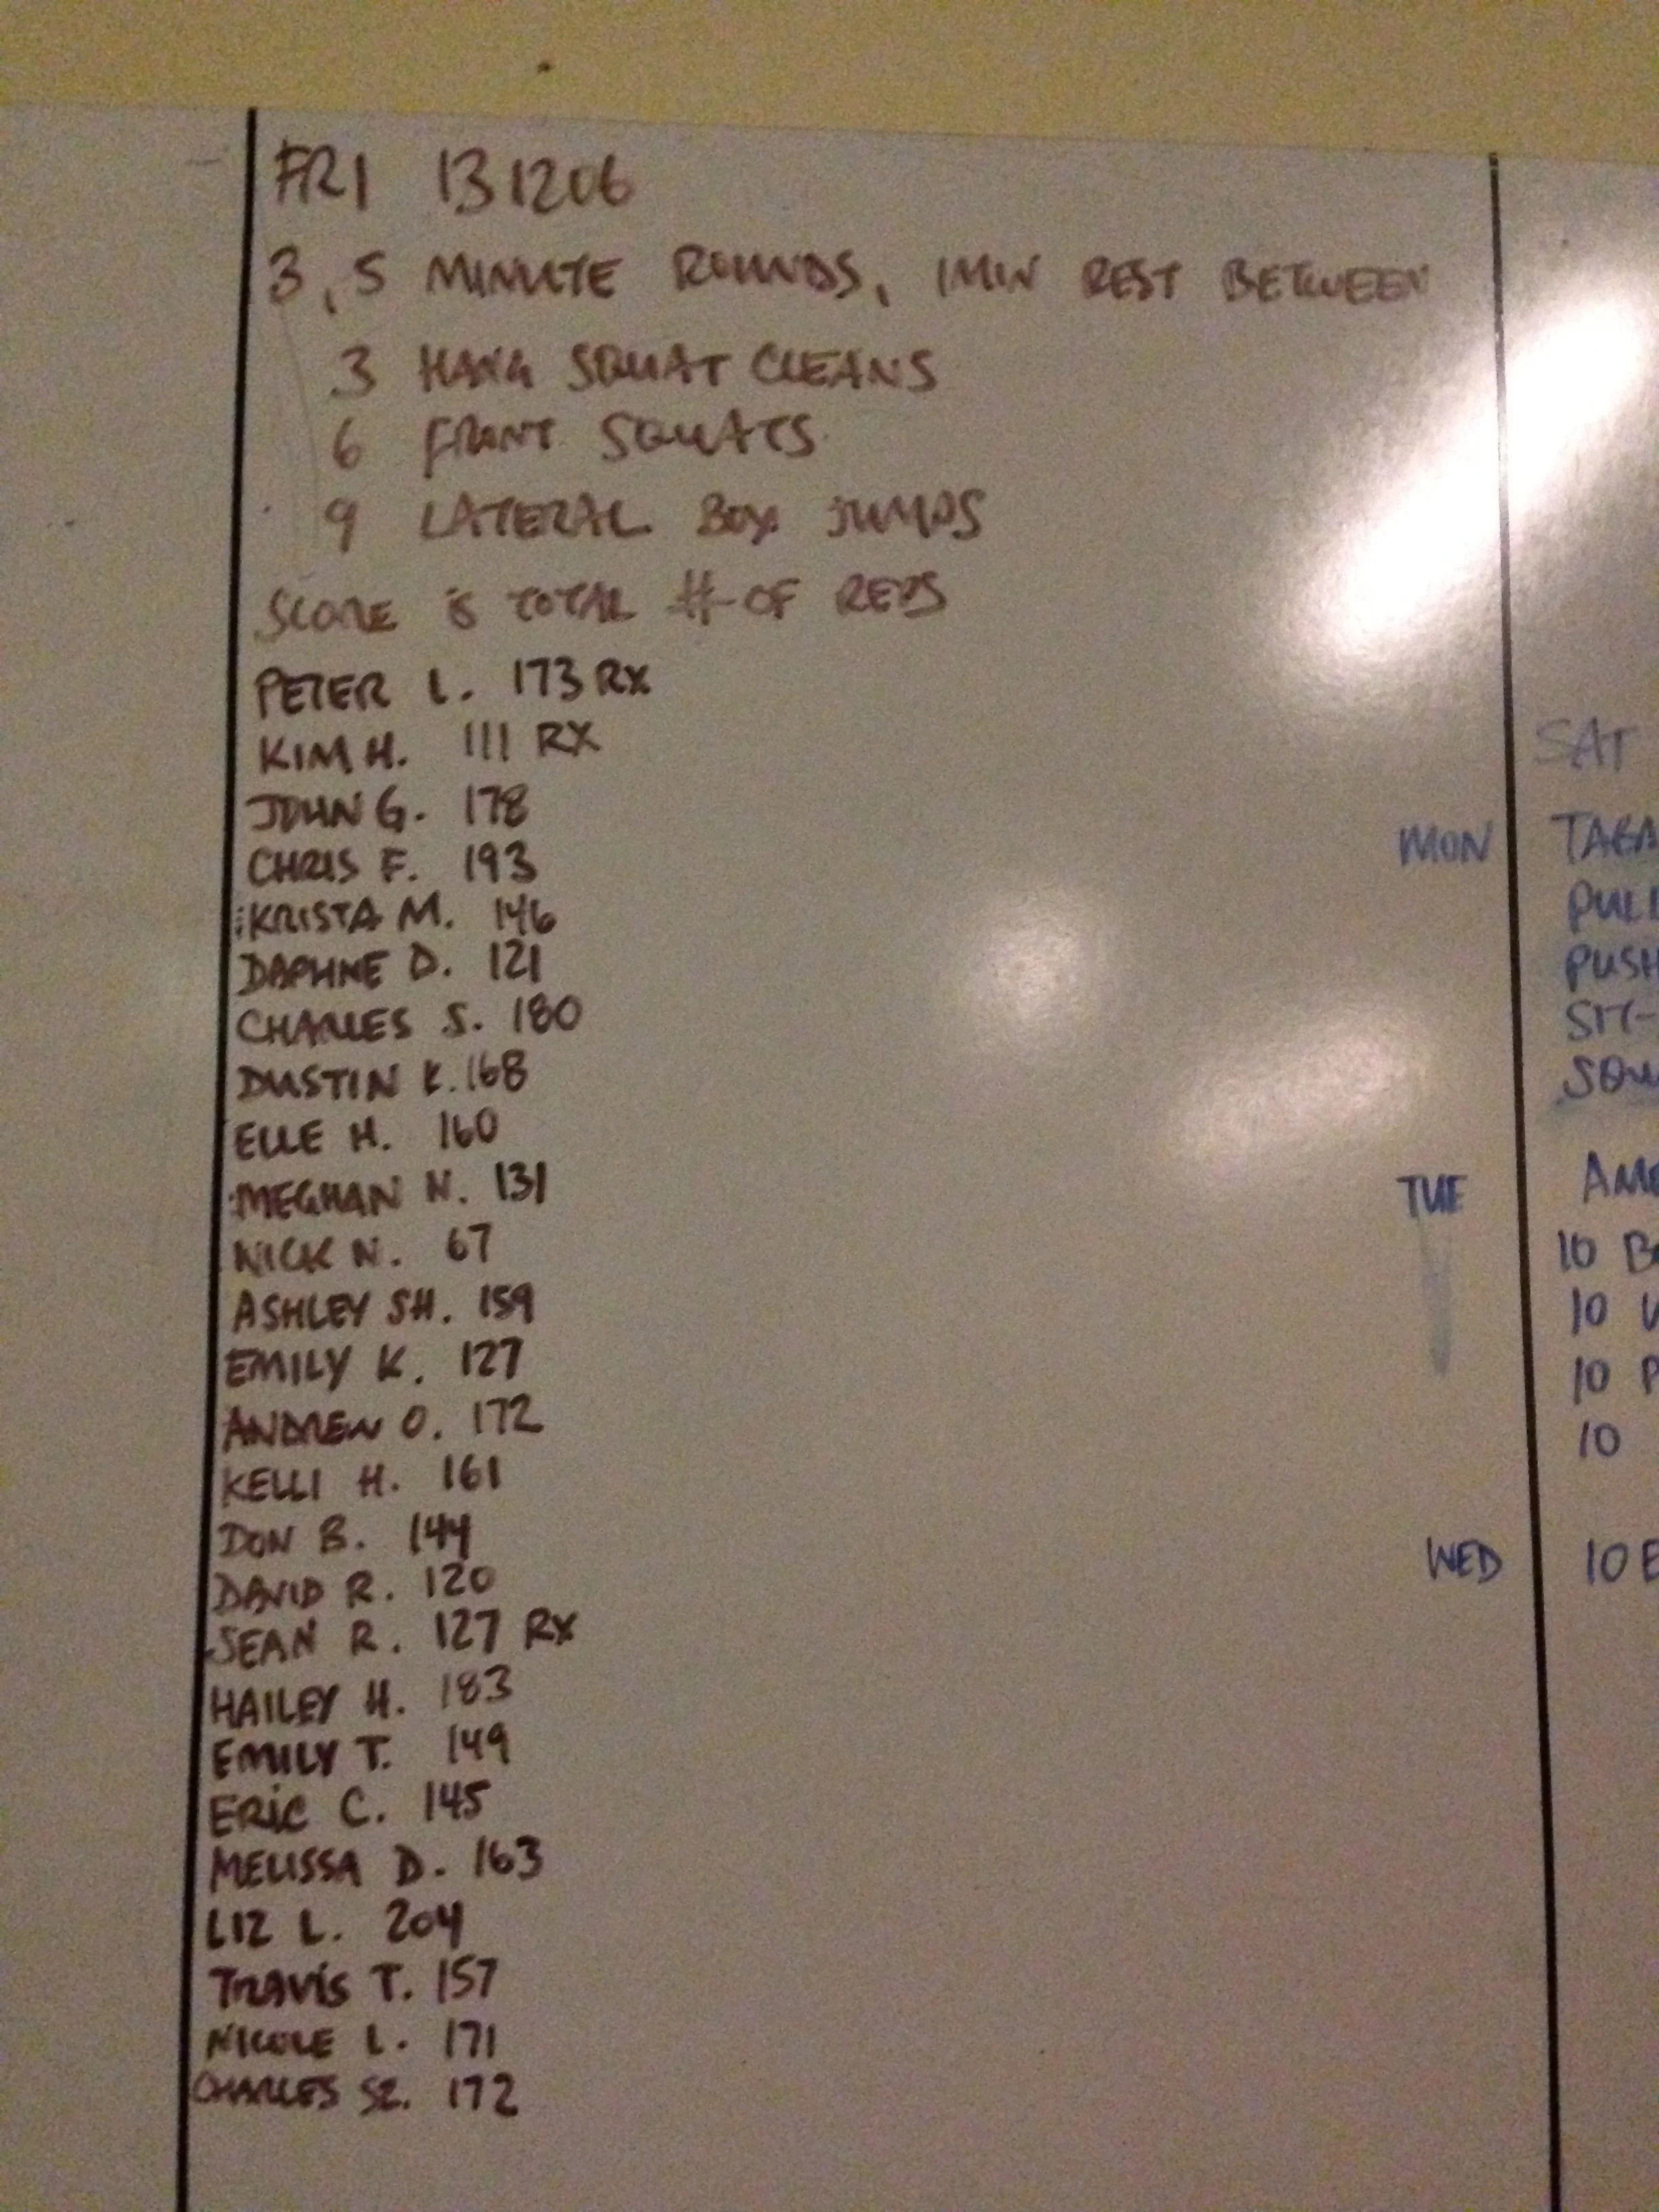 FRI 131206
3, 5 MINUTE ROUNDS, 1MIN REST BETWEEN
3 HANG SQUAT CLEANS
6 FRONT SQUATS
9 LATERAL BOX JUMPS
SCORE IS TOTAL # OF REPS
PETER L. 173 RX
KIM H. 111 RX
JOHN G. 178
CHRIS F. 193
KRISTA M. 146
DAPHNE D. 121
CHARLES S. 180
DUSTIN K. 168
ELLE H. 160
MEGHAN N. 131
NICK N. 67
ASHLEY SH. 159
EMILY K. 127
ANDREW O. 172
KELLI H. 161
DON B. 144
DAVID R. 120
SEAN R. 127 RX
HAILEY H. 183
EMILY T. 149
ERIC C. 145
MELISSA D. 163
LIZ L. 204
TRAVIS T. 157
NICOLE L. 171
CHARLES SZ. 172
SAT
MON TABA
PULL
PUSH
SIT-
SQU
TUE AM
10 B
10
10 P
10
WED 10 E